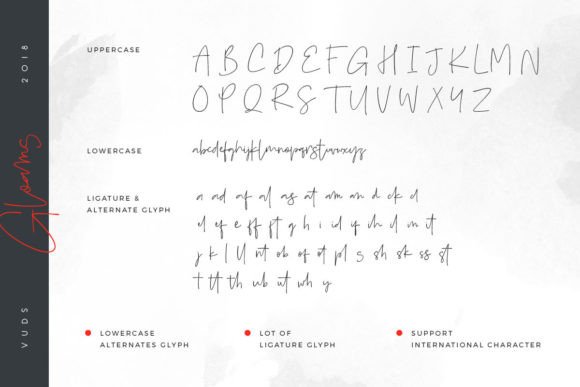 2018
Gloams
VUDS
UPPERCASE
A B C D E F G H I J K L M N
O P Q R S T U V W X Y Z
LOWERCASE
abcdefghijklmnopqrstuvwxyz
LIGATURE &
ALTERNATE GLYPH
a ad af al as at am an d ck d
el ef e ff ft g h i id if ih d m it
j k l ll nt ob of ot pl s sh sk ss st
t tt th ub ut wh y
LOWERCASE
ALTERNATES GLYPH
LOT OF
LIGATURE GLYPH
SUPPORT
INTERNATIONAL CHARACTER